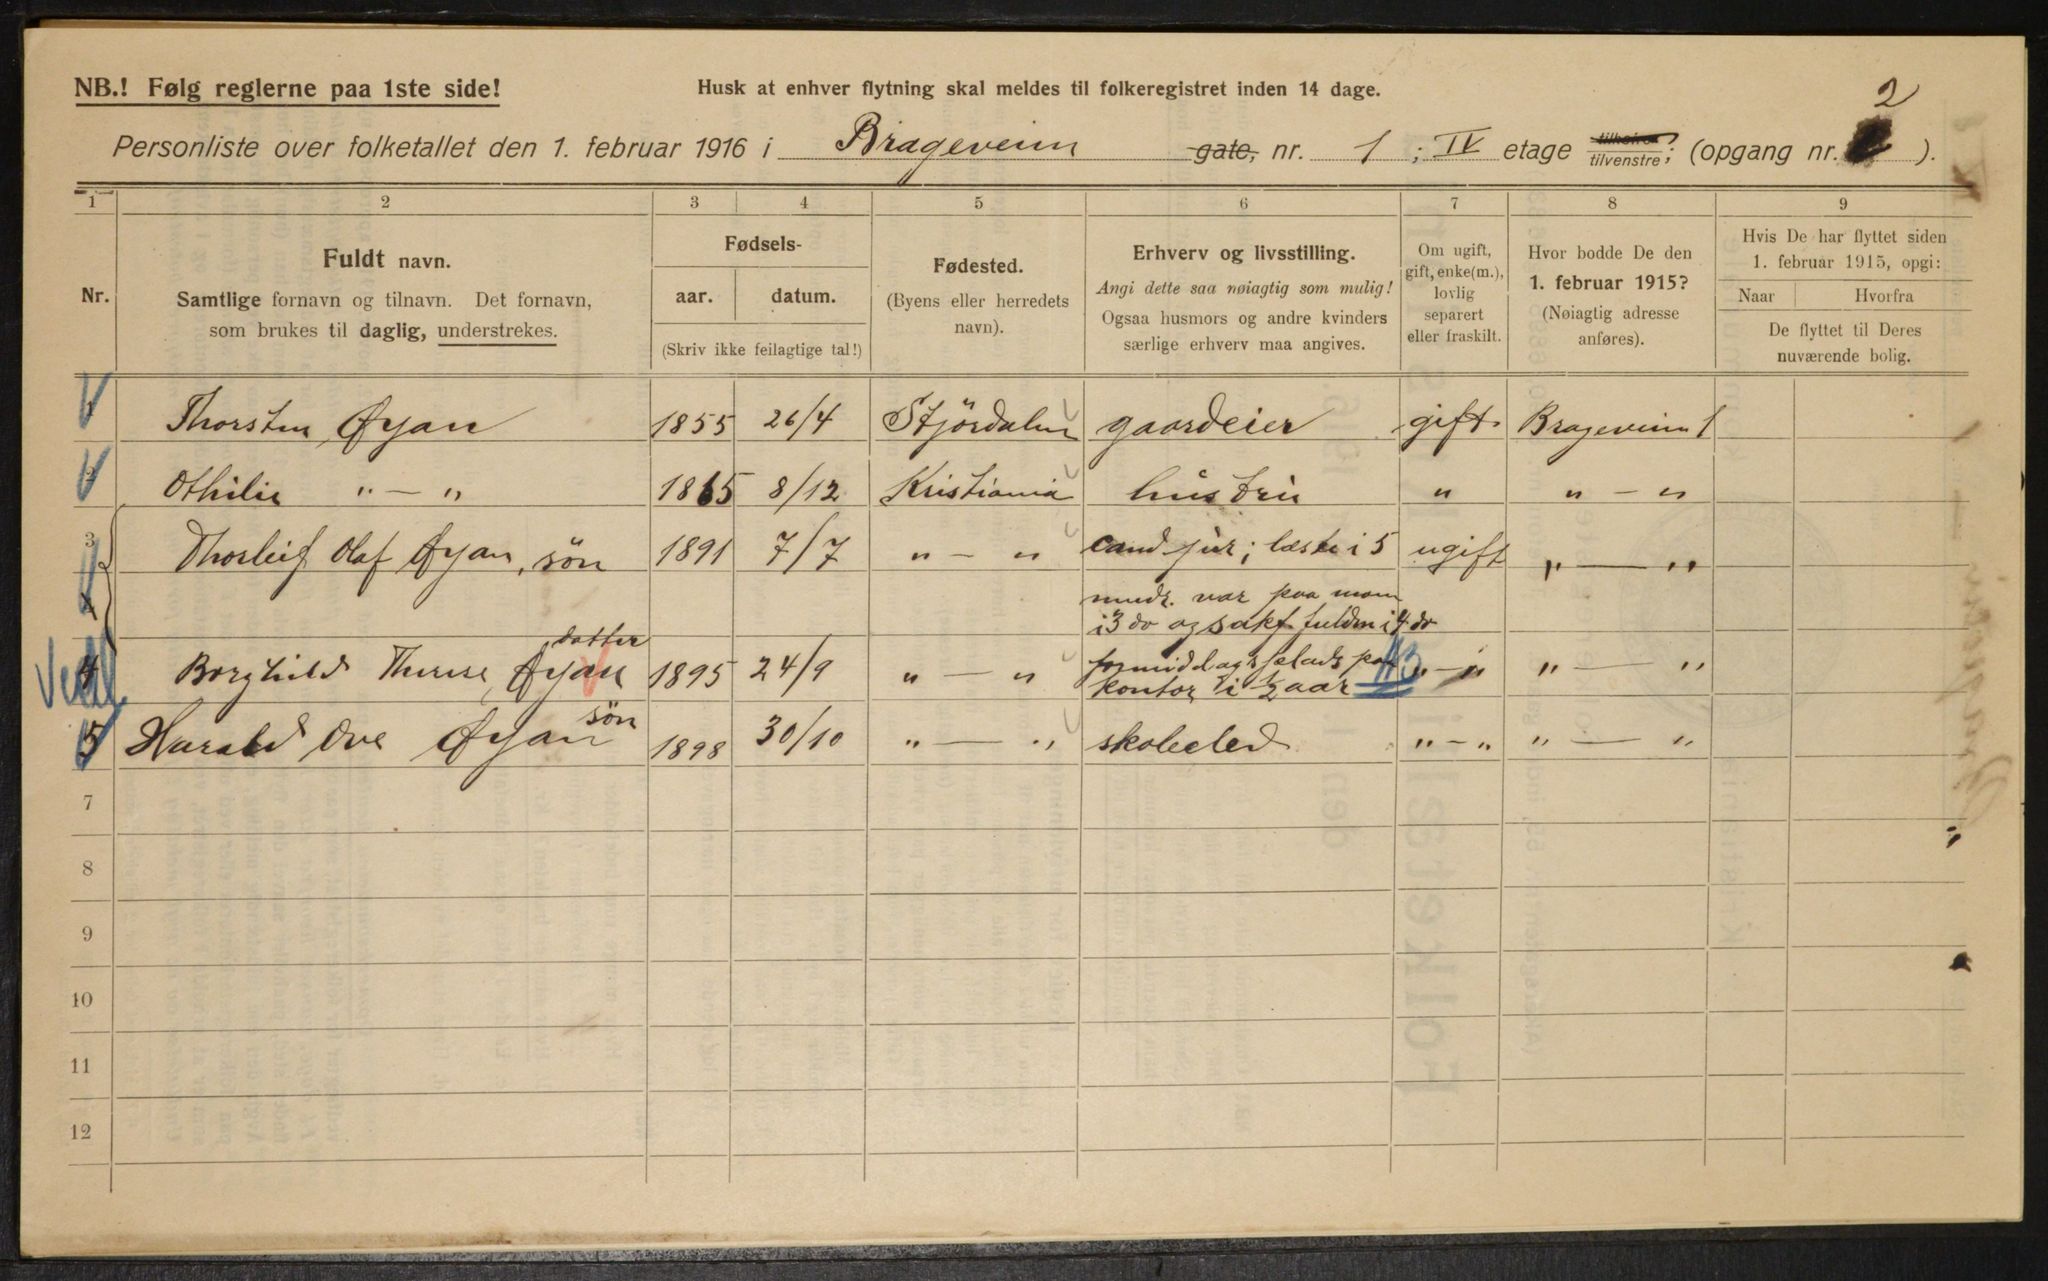 NB.! Følg reglerne paa 1ste side!
Husk at enhver flytning skal meldes til folkeregistret inden 14 dage.
2
Personliste over folketallet den 1. februar 1916 i Brageveien gate, nr. 1 ; IV etage tilhøire/tilvenstre; (opgang nr. ).
1 2 3 4 5 6 7 8 9
Nr.
Fuldt navn.
Samtlige fornavn og tilnavn. Det fornavn,
som brukes til daglig, understrekes.
Fødsels-
aar. datum.
(Skriv ikke feilagtige tal!)
Fødested.
(Byens eller herredets
navn).
Erhverv og livsstilling.
Angi dette saa nøiagtig som mulig!
Ogsaa husmors og andre kvinders
særlige erhverv maa angives.
Om ugift,
gift, enke(m.),
lovlig
separert
eller fraskilt.
Hvor bodde De den
1. februar 1915?
(Nøiagtig adresse
anføres).
Hvis De har flyttet siden
1. februar 1915, opgi:
Naar Hvorfra
De flyttet til Deres
nuværende bolig.
1 Thorsten Øyan 1855 26/4 Stjördalen gaardeier gift Brageveien 1
2 Othilie " — " 1865 8/12 Kristiania hustru " " — "
3 Thorleif Olaf Øyan, sön 1891 7/7 " — " cand jur; læste i 5 ugift " — "
mndr. var paa
i 3 do og sakf.fuldm i 4 do
4 Borghild Therese Øyan datter 1895 24/9 " — " formiddagsplads paa " — " " — "
kontor i 1/2 aar
5 Harald Ove Øyan sön 1898 30/10 " — " skoleelev " — " " — "
7
8
9
10
11
12